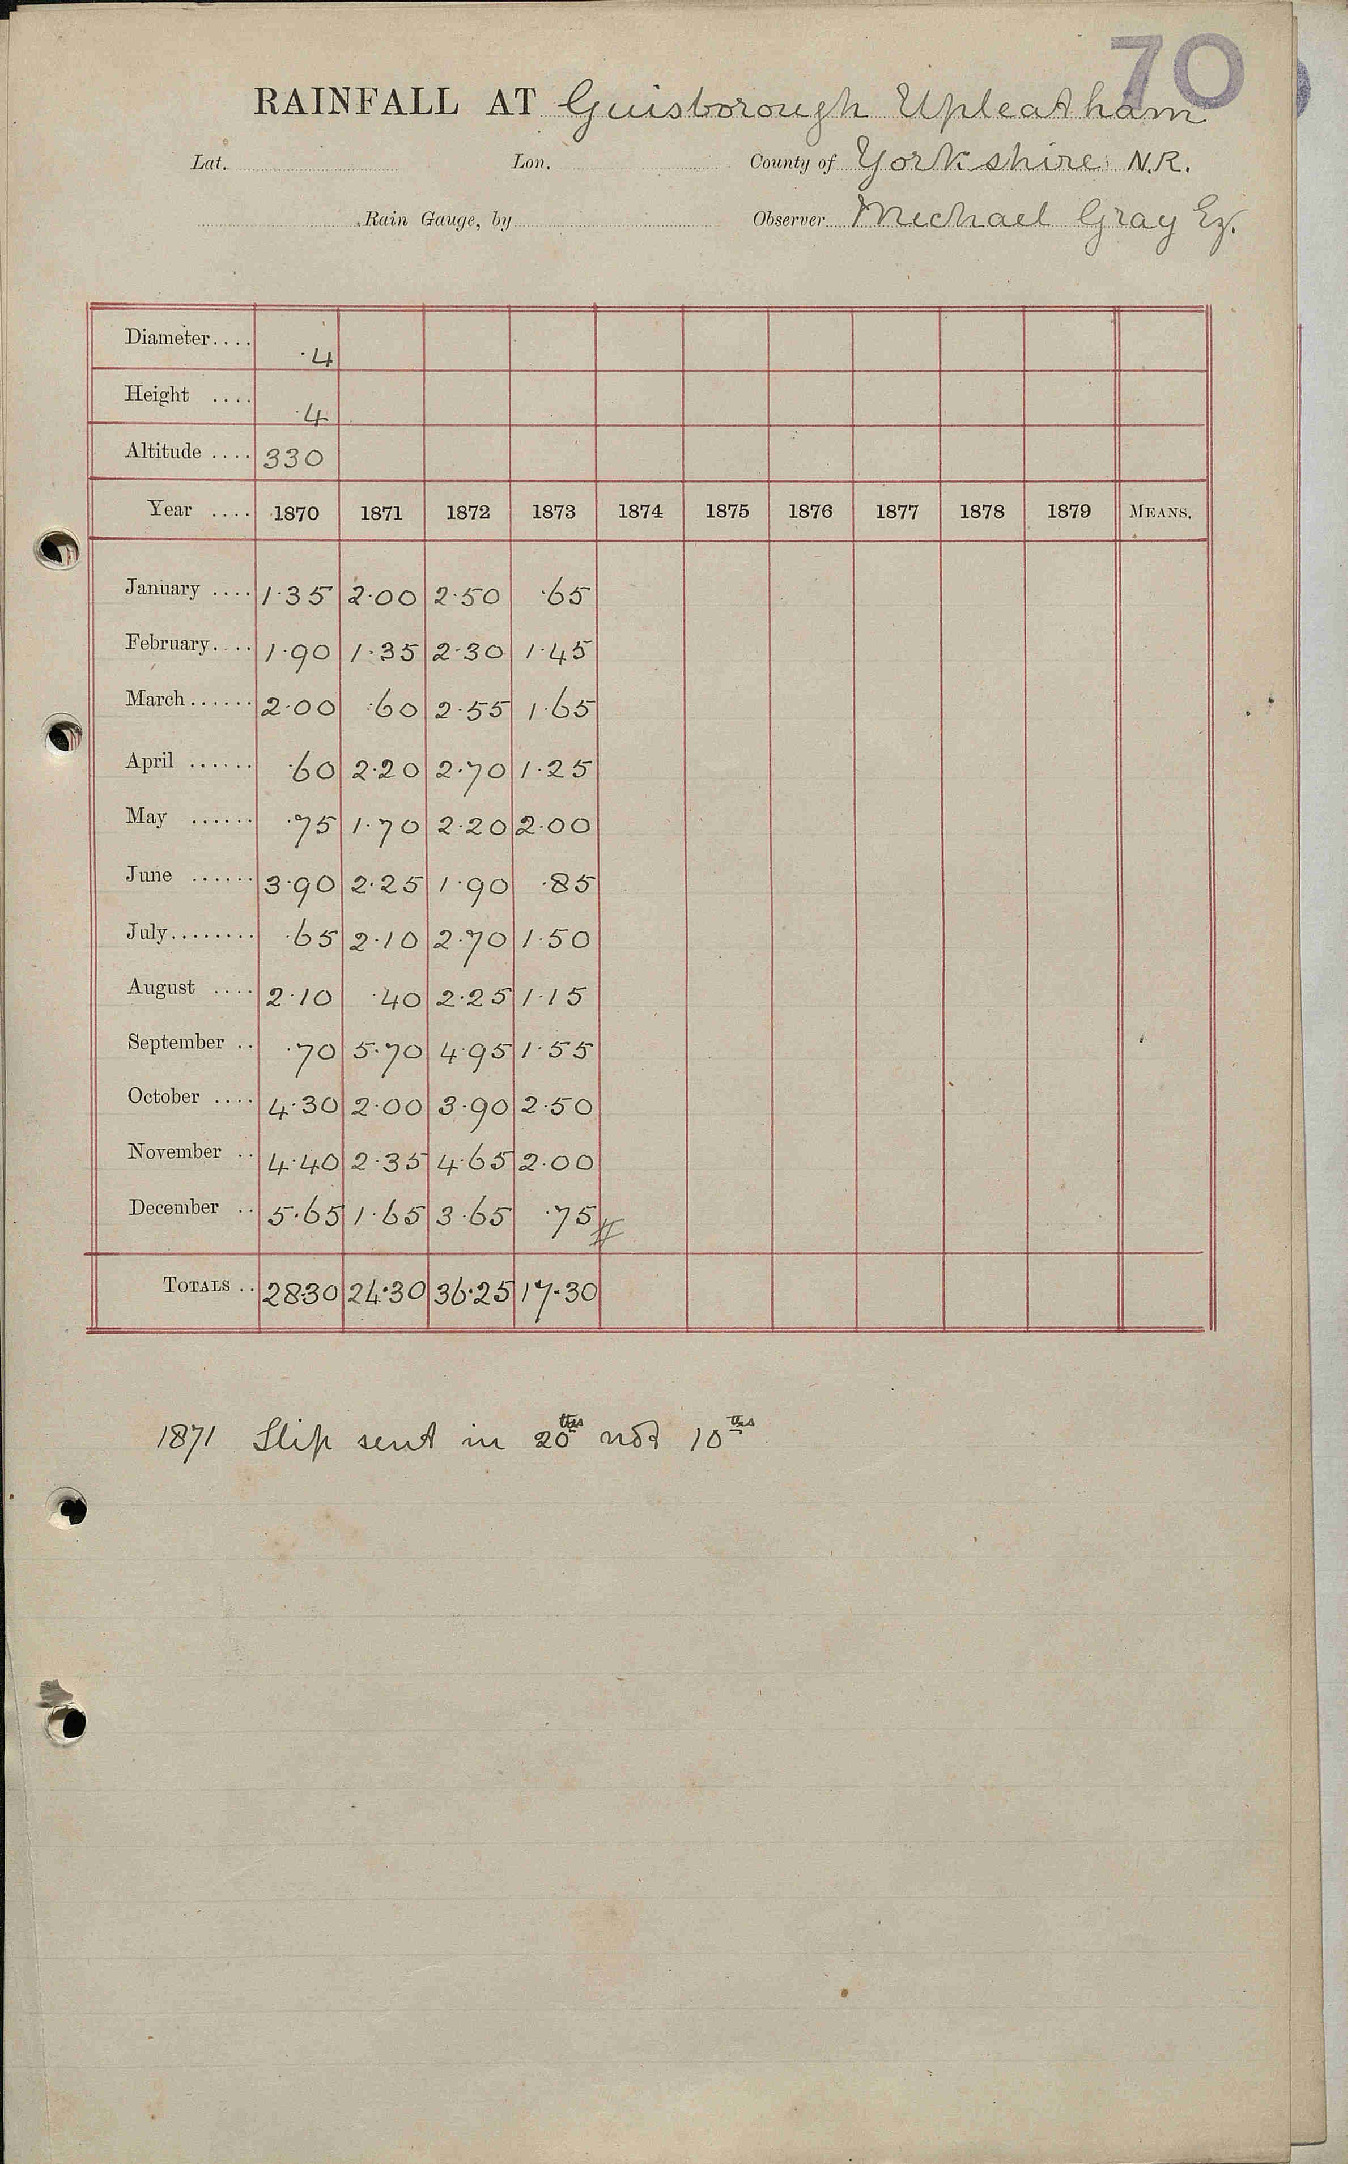 70
RAINFALL AT Guisborough Upleatham
Lat. Lon. County of Yorkshire N.R.
Rain Gauge, by Observer Michael Gray Eq.
Diameter.... ·4
Height .... ·4
Altitude .... 330
Year .... 1870 1871 1872 1873 1874 1875 1876 1877 1878 1879 MEANS.
January .... 1·35 2·00 2·50 ·65
February.... 1·90 1·35 2·30 1·45
March...... 2·00 ·60 2·55 1·65
April ...... ·60 2·20 2·70 1·25
May ...... ·75 1·70 2·20 2·00
June ...... 3·90 2·25 1·90 ·85
July........ ·65 2·10 2·70 1·50
August .... 2·10 ·40 2·25 1·15
September .. ·70 5·70 4·95 1·55
October .... 4·30 2·00 3·90 2·50
November .. 4·40 2·35 4·65 2·00
December .. 5·65 1·65 3·65 ·75 #
TOTALS .. 28·30 24·30 36·25 17·30
1871 Slip sent in 20ths not 10ths